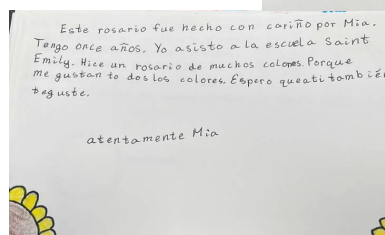 Este rosario fue hecho con cariño por Mia.
Tengo once años. Yo asisto a la escuela Saint
Emily. Hice un rosario de muchos colores. Porque
me gustan to dos los colores. Espero queati tambié
te guste.
atentamente Mia